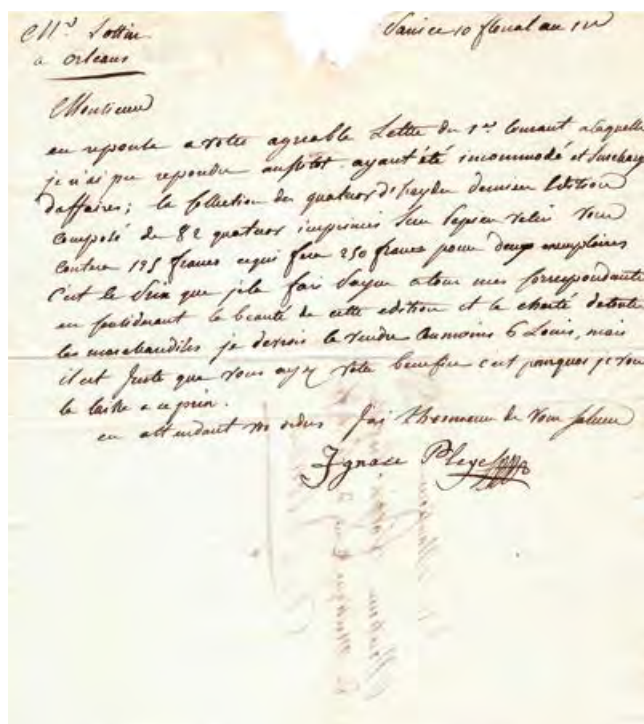 Mr. Lottin
a orleans
Paris ce 10 floreal an
Monsieur
en reponse a votre agreable Lettre du 1er Courant a laquelle
je n'ai pu repondre aussitot ayant été incommodé et Surchargé
d'affaires; la Collection des quatuor d'hayden derniere Edition
composé de 82 quatuor imprimés Sur Papier velin vous
coutera 125 francs ce qui fera 250 francs pour deux exemplaires
C'est le Prix que je le fais Payer a tous mes Correspondants
en considerant la beauté de cette edition et la cherté de toutes
les marchandises je devrois la vendre au moins 6 Louis, mais
il est Juste que vous ayez votre benefice c'est pourquoi je vous
la laisse a ce prix.
en attendant vos ordres J'ai L'honneur de vous saluer
Ignace Pleyel